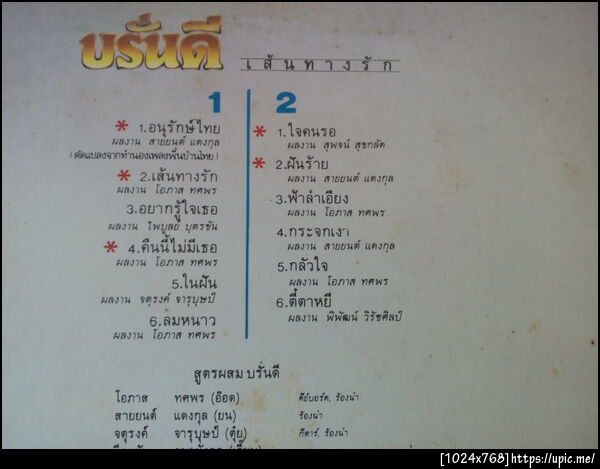 บรั่นดี
เส้นทางรัก
1
* 1.อนุรักษ์ไทย
ผลงาน สายยนต์ แดงกุล
(ดัดแปลงจากทำนองเพลงพื้นบ้านไทย)
* 2.เส้นทางรัก
ผลงาน โอภาส ทศพร
3.อยากรู้ใจเธอ
ผลงาน ไพบูลย์ บุตรขัน
* 4.คืนนี้ไม่มีเธอ
ผลงาน โอภาส ทศพร
5.ในฝัน
ผลงาน จตุรงค์ จารุบุษป์
6.ลมหนาว
ผลงาน โอภาส ทศพร
2
* 1.ใจคนรอ
ผลงาน สุพจน์ สุขกลัด
* 2.ฝันร้าย
ผลงาน สายยนต์ แดงกุล
3.ฟ้าลำเอียง
ผลงาน โอภาส ทศพร
4.กระจกเงา
ผลงาน สายยนต์ แดงกุล
5.กลัวใจ
ผลงาน โอภาส ทศพร
6.ตี๋ตาหยี
ผลงาน พิพัฒน์ วิรัชศิลป์
สูตรผสม บรั่นดี
โอภาส ทศพร (อ๊อด) คีย์บอร์ด, ร้องนำ
สายยนต์ แดงกุล (ยน) ร้องนำ
จตุรงค์ จารุบุษป์ (ตุ๋ย) กีตาร์, ร้องนำ
[1024x768]https://upic.me/